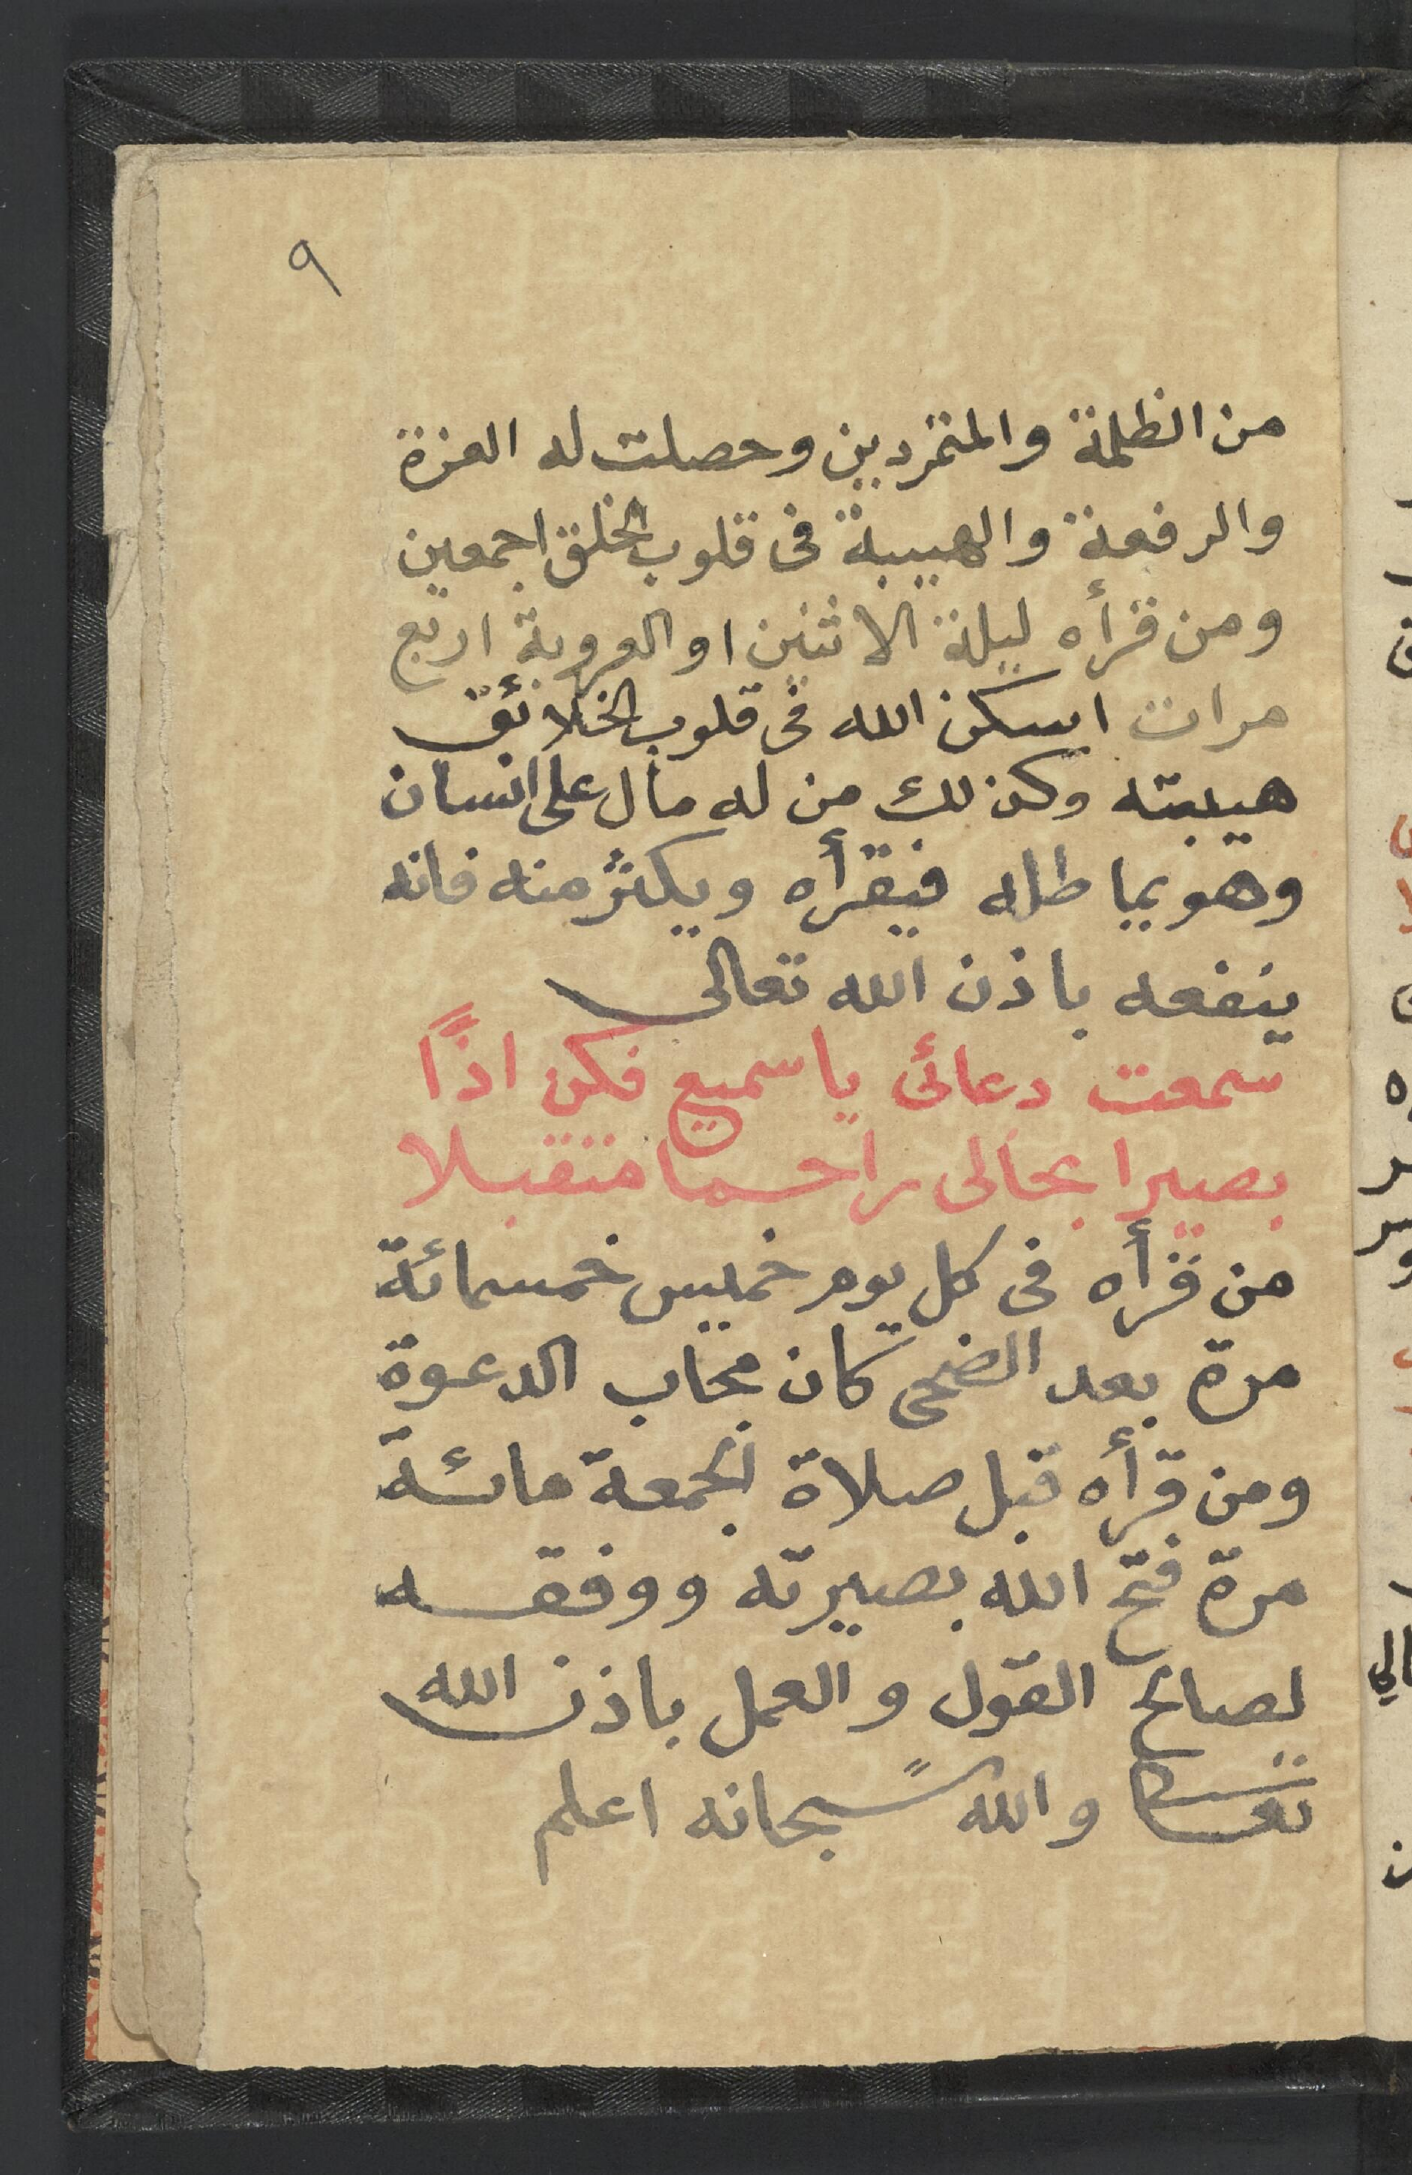 ٩
من الظلمة والمتمردين وحصلت له العزة
والرفعة والهيبة فى قلوب الخلق اجمعين
ومن قرأه ليلة الاثنين او العروبة اربع
مرات اسكن الله فى قلوب الخلائق
هيبته وكذلك من له مال على انسان
وهو يماطله فيقرأه ويكثر منه فانه
ينفعه باذن الله تعالى
سمعت دعائى يا سميع فكن اذًا
بصيرا بحالى راحما متقبلا
من قرأه فى كل يوم خميس خمسمائة
مرة بعد الضحى كان مجاب الدعوة
ومن قرأه قبل صلاة الجمعة مائة
مرة فتح الله بصيرته ووفقه
لصالح القول والعمل باذن الله
تعالى والله سبحانه اعلم